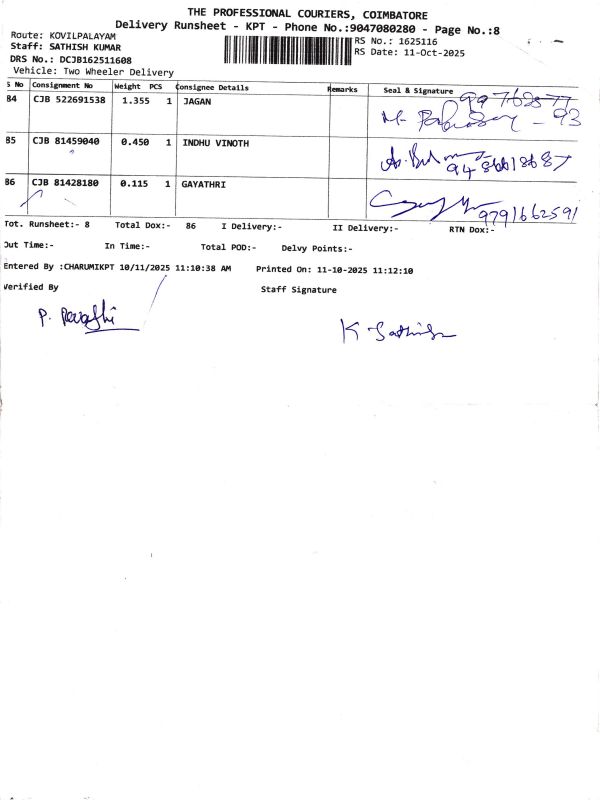 THE PROFESSIONAL COURIERS, COIMBATORE
Delivery Runsheet - KPT - Phone No.:9047080280 - Page No.:8
Route: KOVILPALAYAM
RS No.: 1625116
Staff: SATHISH KUMAR
RS Date: 11-Oct-2025
DRS No.: DCJB162511608
Vehicle: Two Wheeler Delivery
S No Consignment No Weight PCS Consignee Details Remarks Seal & Signature
84 CJB 522691538 1.355 1 JAGAN
M.
- 93
85 CJB 81459040 0.450 1 INDHU VINOTH
86 CJB 81428180 0.115 1 GAYATHRI
9791662591
Tot. Runsheet:- 8 Total Dox:- 86 I Delivery:- II Delivery:- RTN Dox:-
Out Time:- In Time:- Total POD:- Delvy Points:-
Entered By :CHARUMIKPT 10/11/2025 11:10:38 AM Printed On: 11-10-2025 11:12:10
Verified By Staff Signature
P. Revathi
K Sathish